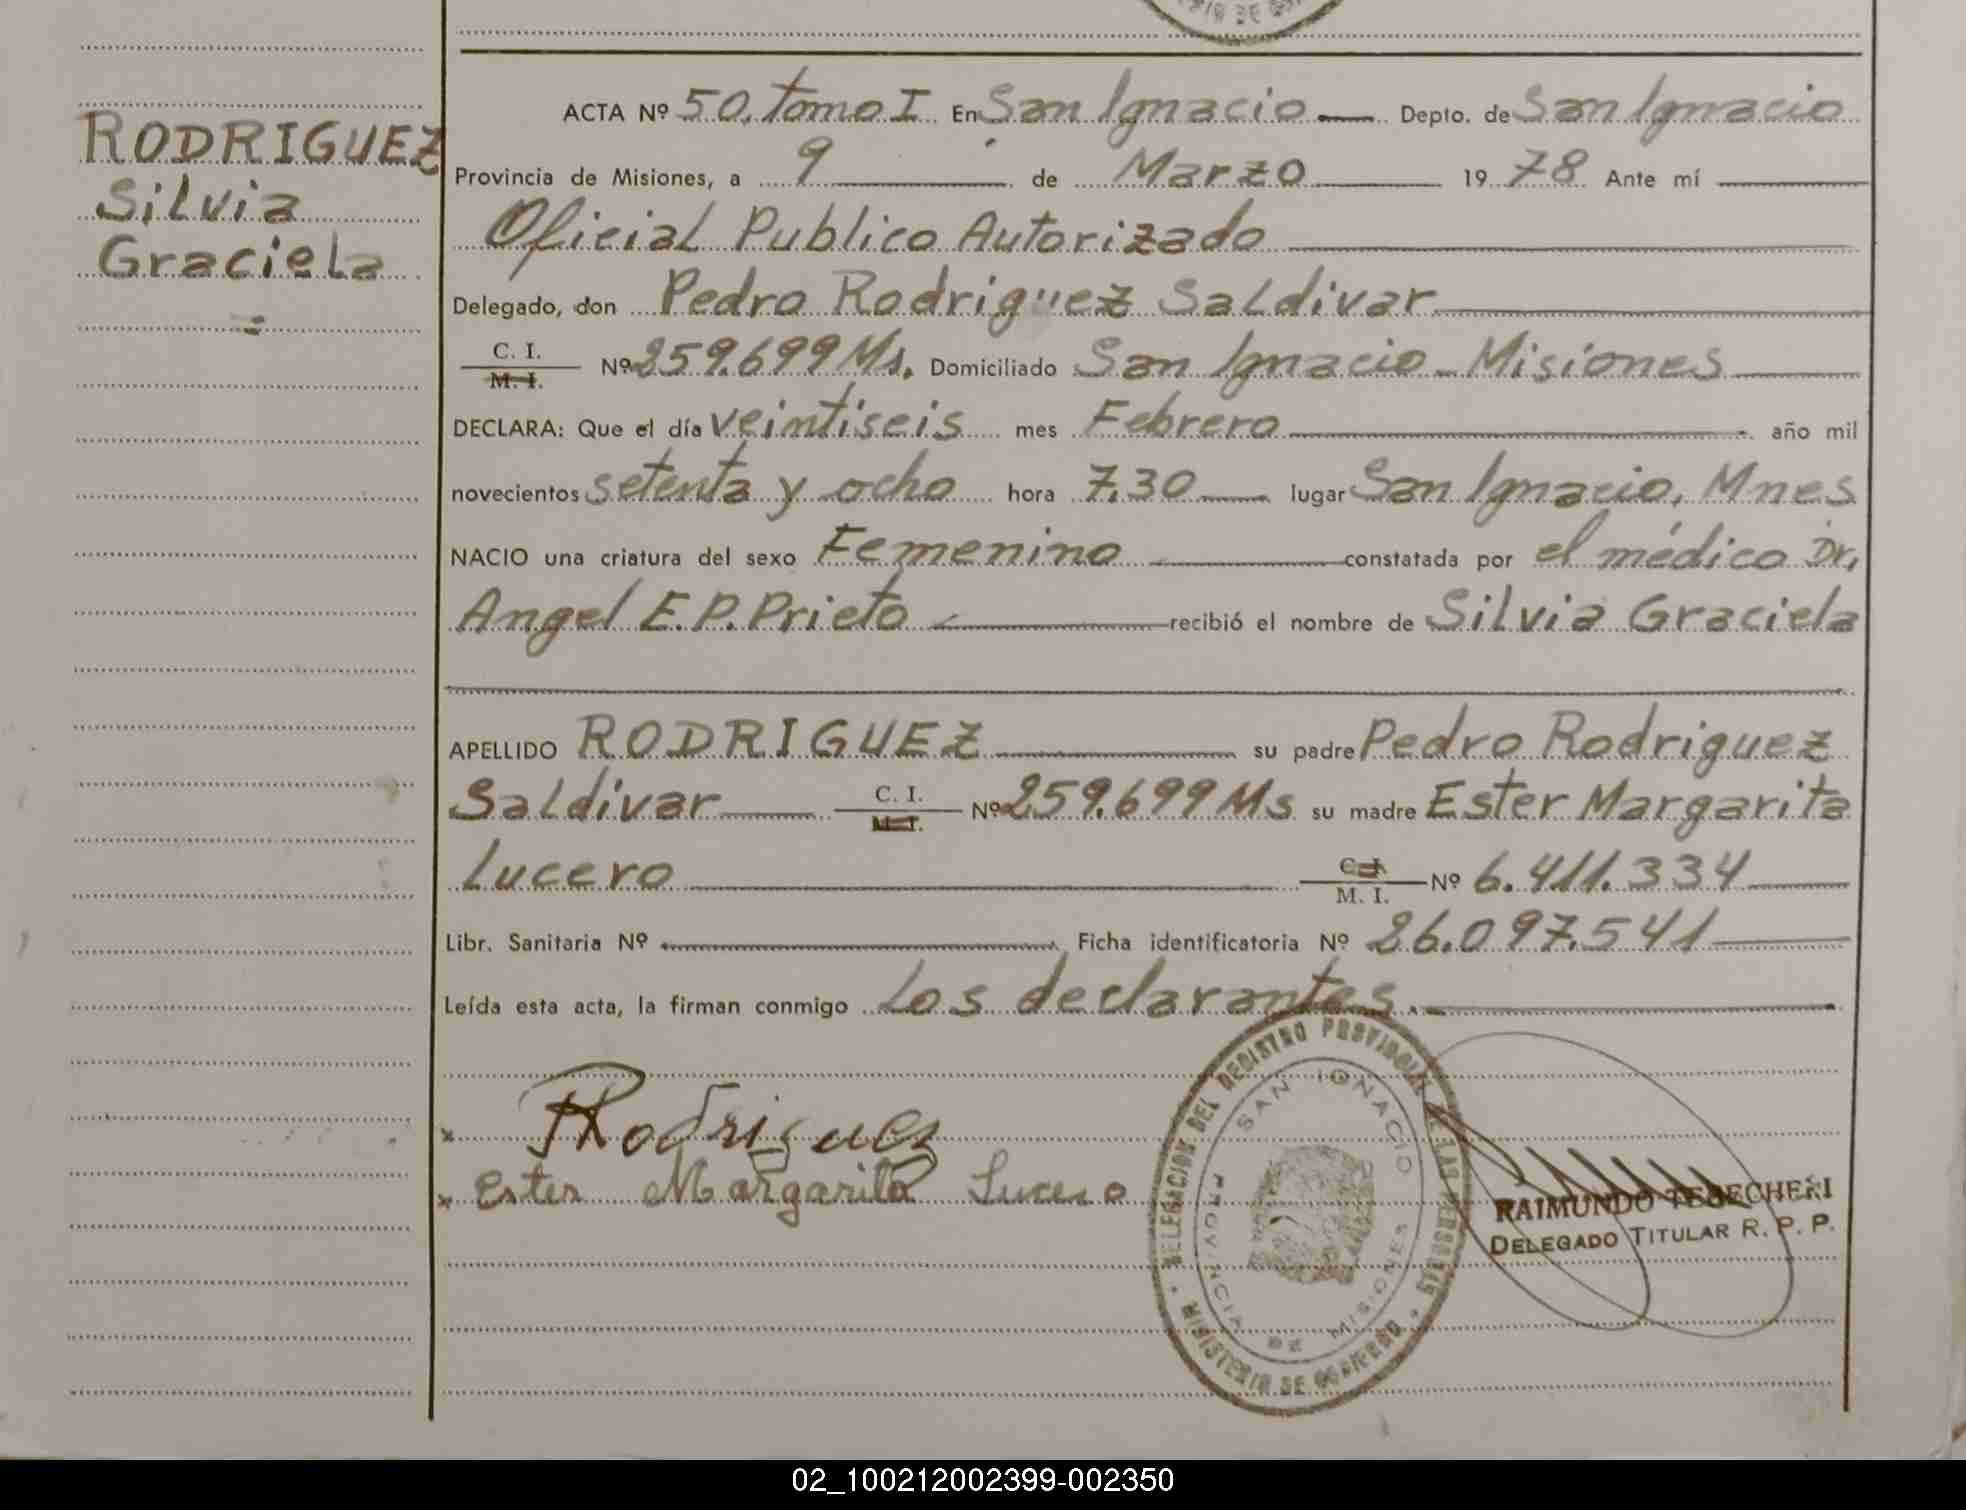 RODRIGUEZ
Silvia
Graciela
=
ACTA Nº 50. tomo I En San Ignacio Depto. de San Ignacio
Provincia de Misiones, a 9 de Marzo 1978 Ante mí
Oficial Publico Autorizado
Delegado, don Pedro Rodriguez Saldivar
C. I.
M. I. Nº 259.699 Ms. Domiciliado San Ignacio - Misiones
DECLARA: Que el día veintiseis mes Febrero año mil
novecientos setenta y ocho hora 7.30 lugar San Ignacio, Mnes
NACIO una criatura del sexo Femenino constatada por el médico Dr,
Angel E.P. Prieto recibió el nombre de Silvia Graciela
APELLIDO RODRIGUEZ su padre Pedro Rodriguez
Saldivar C. I. M. I. Nº 259.699 Ms su madre Ester Margarita
Lucero C. I. M. I. Nº 6.411.334
Libr. Sanitaria Nº Ficha identificatoria Nº 26.097.541
Leída esta acta, la firman conmigo Los declarantes.
x Rodriguez
x Ester Margarita Lucero
DELEGACION DEL REGISTRO PROVINCIAL DE LAS PERSONAS
SAN IGNACIO
PROVINCIA DE MISIONES
MINISTERIO DE GOBIERNO
RAIMUNDO
DELEGADO TITULAR R. P. P.
02_100212002399-002350